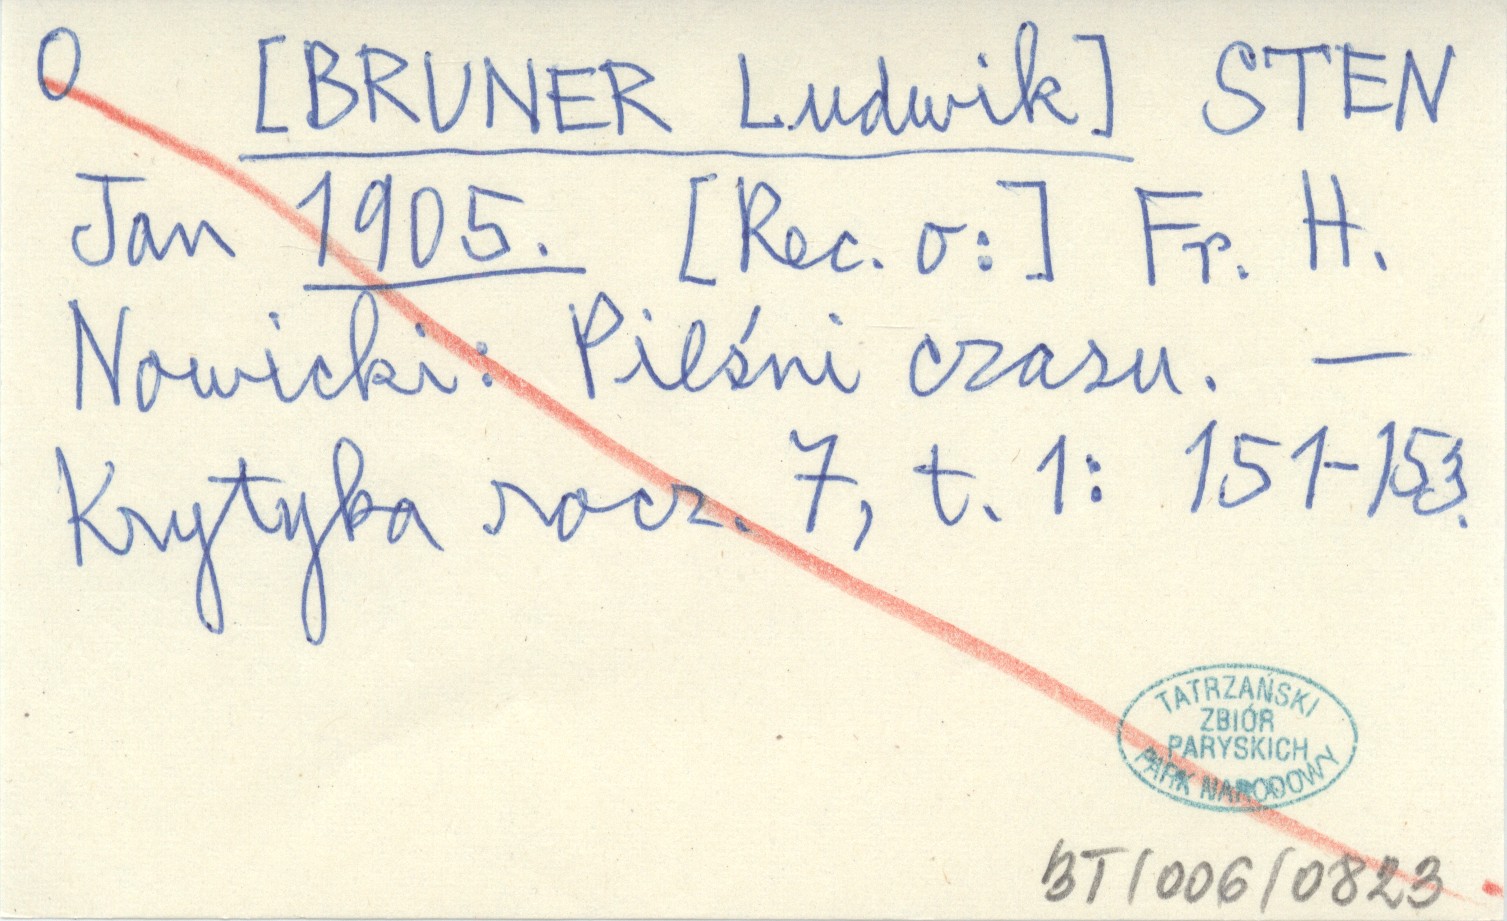 O [BRUNER Ludwik] STEN
Jan 1905. [Rec. o:] Fr. H.
Nowicki: Pieśni czasu. —
Krytyka rocz. 7, t. 1: 151-153.
TATRZAŃSKI
ZBIÓR
PARYSKICH
PARK NARODOWY
BT/006/0823